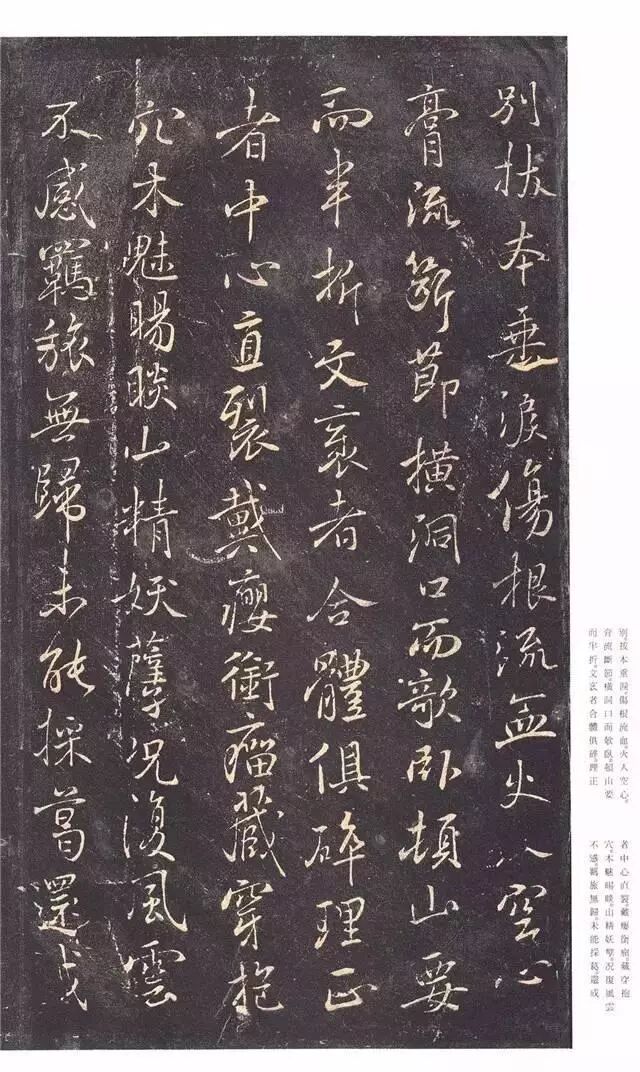 別拔本垂淚傷根流血火入空心
膏流斷節橫洞口而欹臥頓山要
而半折文袤者合體俱碎理正
者中心直裂戴癭銜瘤藏穿抱
穴木魅睗睒山精妖孽况復風雲
不感羈旅無歸未能採葛還成
別。拔本垂淚。傷根流血。火入空心。
膏流斷節。橫洞口而欹臥。頓山要
而半折。文袤者合體俱碎。理正
者中心直裂。戴癭銜瘤。藏穿抱
穴。木魅睗睒。山精妖孽。況復風雲
不感。羈旅無歸。未能採葛。還成